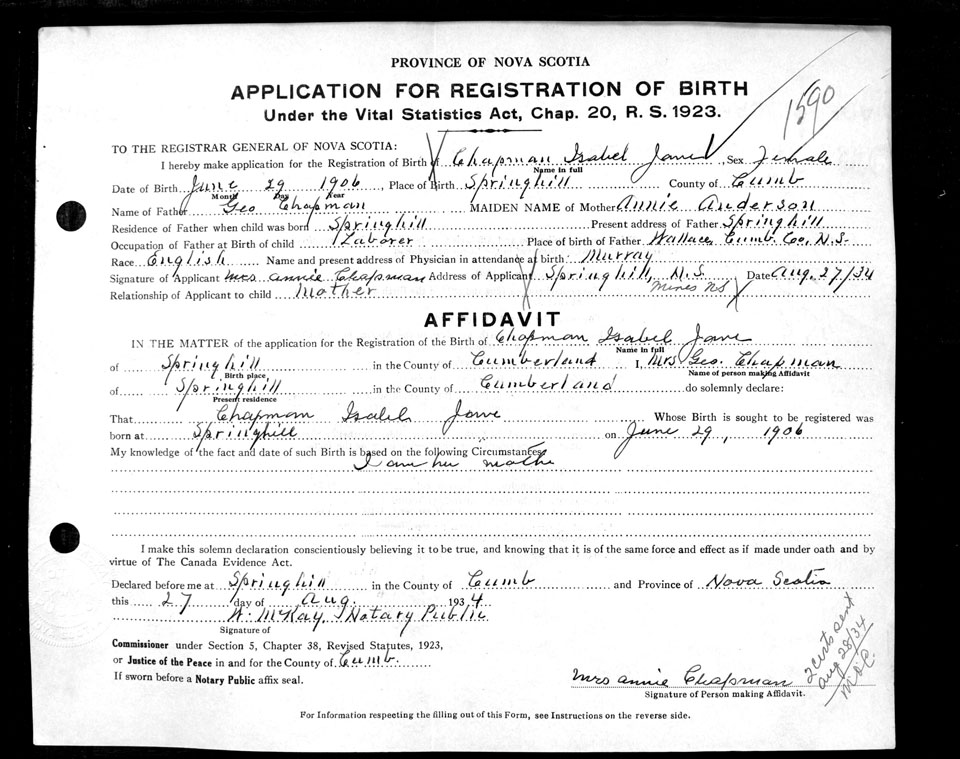 PROVINCE OF NOVA SCOTIA
APPLICATION FOR REGISTRATION OF BIRTH
Under the Vital Statistics Act, Chap. 20, R. S. 1923.
1590
TO THE REGISTRAR GENERAL OF NOVA SCOTIA:
I hereby make application for the Registration of Birth of Chapman Isabel Jane Sex Female
Name in full
Date of Birth June 29 1906 Place of Birth Springhill County of Cumb
Month Day Year
Name of Father Geo Chapman MAIDEN NAME of Mother Annie Anderson
Residence of Father when child was born Springhill Present address of Father Springhill
Occupation of Father at Birth of child Laborer Place of birth of Father Wallace Cumb. Co. N.S.
Race English Name and present address of Physician in attendance at birth Murray
Signature of Applicant Mrs Annie Chapman Address of Applicant Springhill, N.S. Date Aug. 27/34
Mines NS
Relationship of Applicant to child Mother
AFFIDAVIT
IN THE MATTER of the application for the Registration of the Birth of Chapman Isabel Jane
Name in full
of Springhill in the County of Cumberland I, Mrs Geo. Chapman
Birth place, Name of person making Affidavit
of Springhill in the County of Cumberland do solemnly declare:
Present residence
That Chapman Isabel Jane Whose Birth is sought to be registered was
born at Springhill on June 29, 1906
My knowledge of the fact and date of such Birth is based on the following Circumstances
I am her mother
I make this solemn declaration conscientiously believing it to be true, and knowing that it is of the same force and effect as if made under oath and by
virtue of The Canada Evidence Act.
Declared before me at Springhill in the County of Cumb and Province of Nova Scotia
this 27 day of Aug. 1934
W. McKay, Notary Public
Signature of
Commissioner under Section 5, Chapter 38, Revised Statutes, 1923,
or Justice of the Peace in and for the County of Cumb.
If sworn before a Notary Public affix seal.
Mrs Annie Chapman
Signature of Person making Affidavit.
2 certs sent
Aug 28/34
For Information respecting the filling out of this Form, see Instructions on the reverse side.